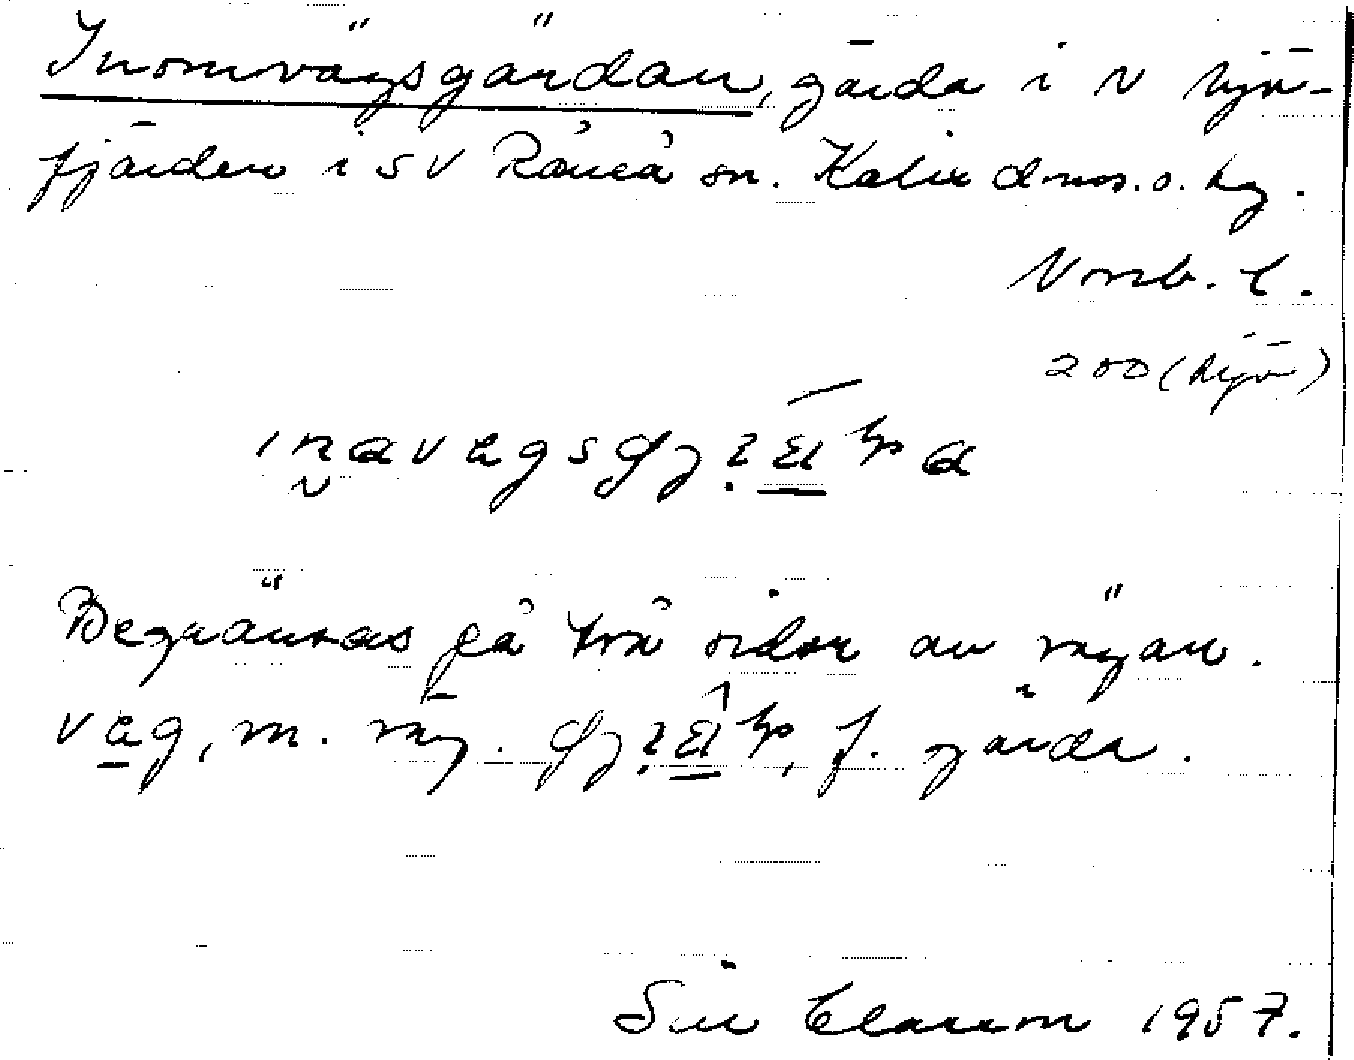 Inomvägsgärdan, gärda i N Hjö-
fjärden i SV Råneå sn. Kalix dms. o. hg.
Norrb. l.
200 (Hjö)
Begränsas på två sidor av vägar.
väg, m. väg. f. gärda.
Siv Clarem 1957.